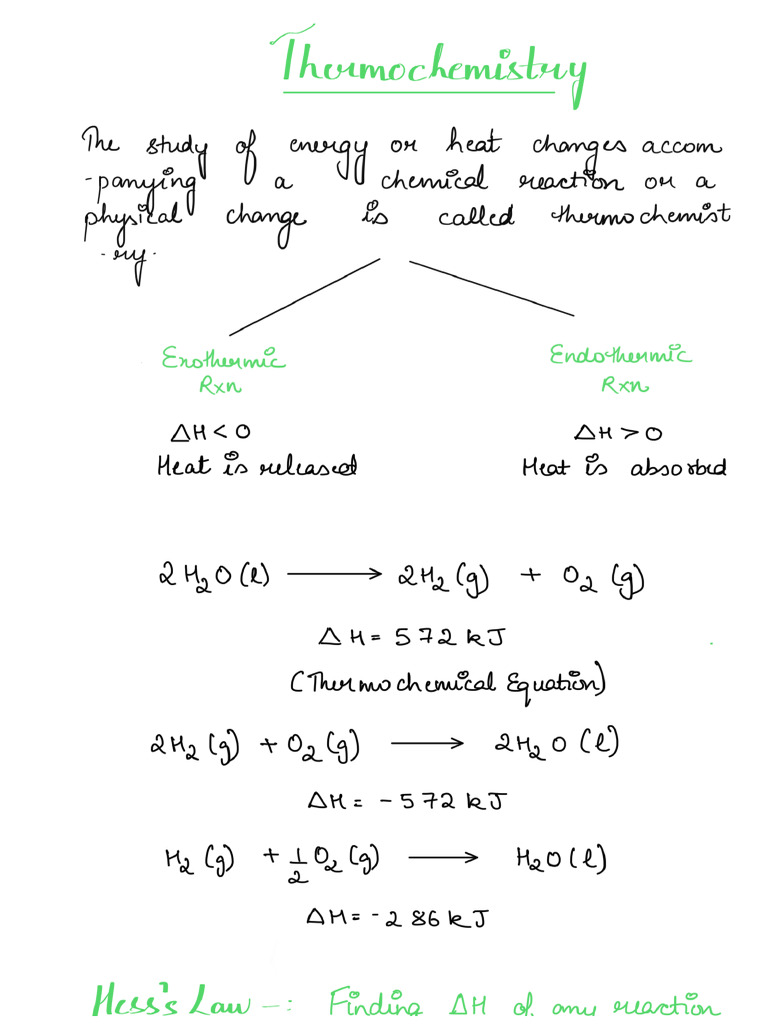 Thermochemistry
The study of energy or heat changes accom
-panying a chemical reaction or a
physical change is called thermochemist
-ry.
Exothermic Endothermic
Rxn Rxn
ΔH < 0 ΔH > 0
Heat is released Heat is absorbed
2H₂O(l) → 2H₂(g) + O₂(g)
ΔH = 572 kJ
(Thermochemical Equation)
2H₂(g) + O₂(g) → 2H₂O(l)
ΔH = -572 kJ
H₂(g) + 1/2 O₂(g) → H₂O(l)
ΔH = -286 kJ
Hess's Law -: Finding ΔH of any reaction